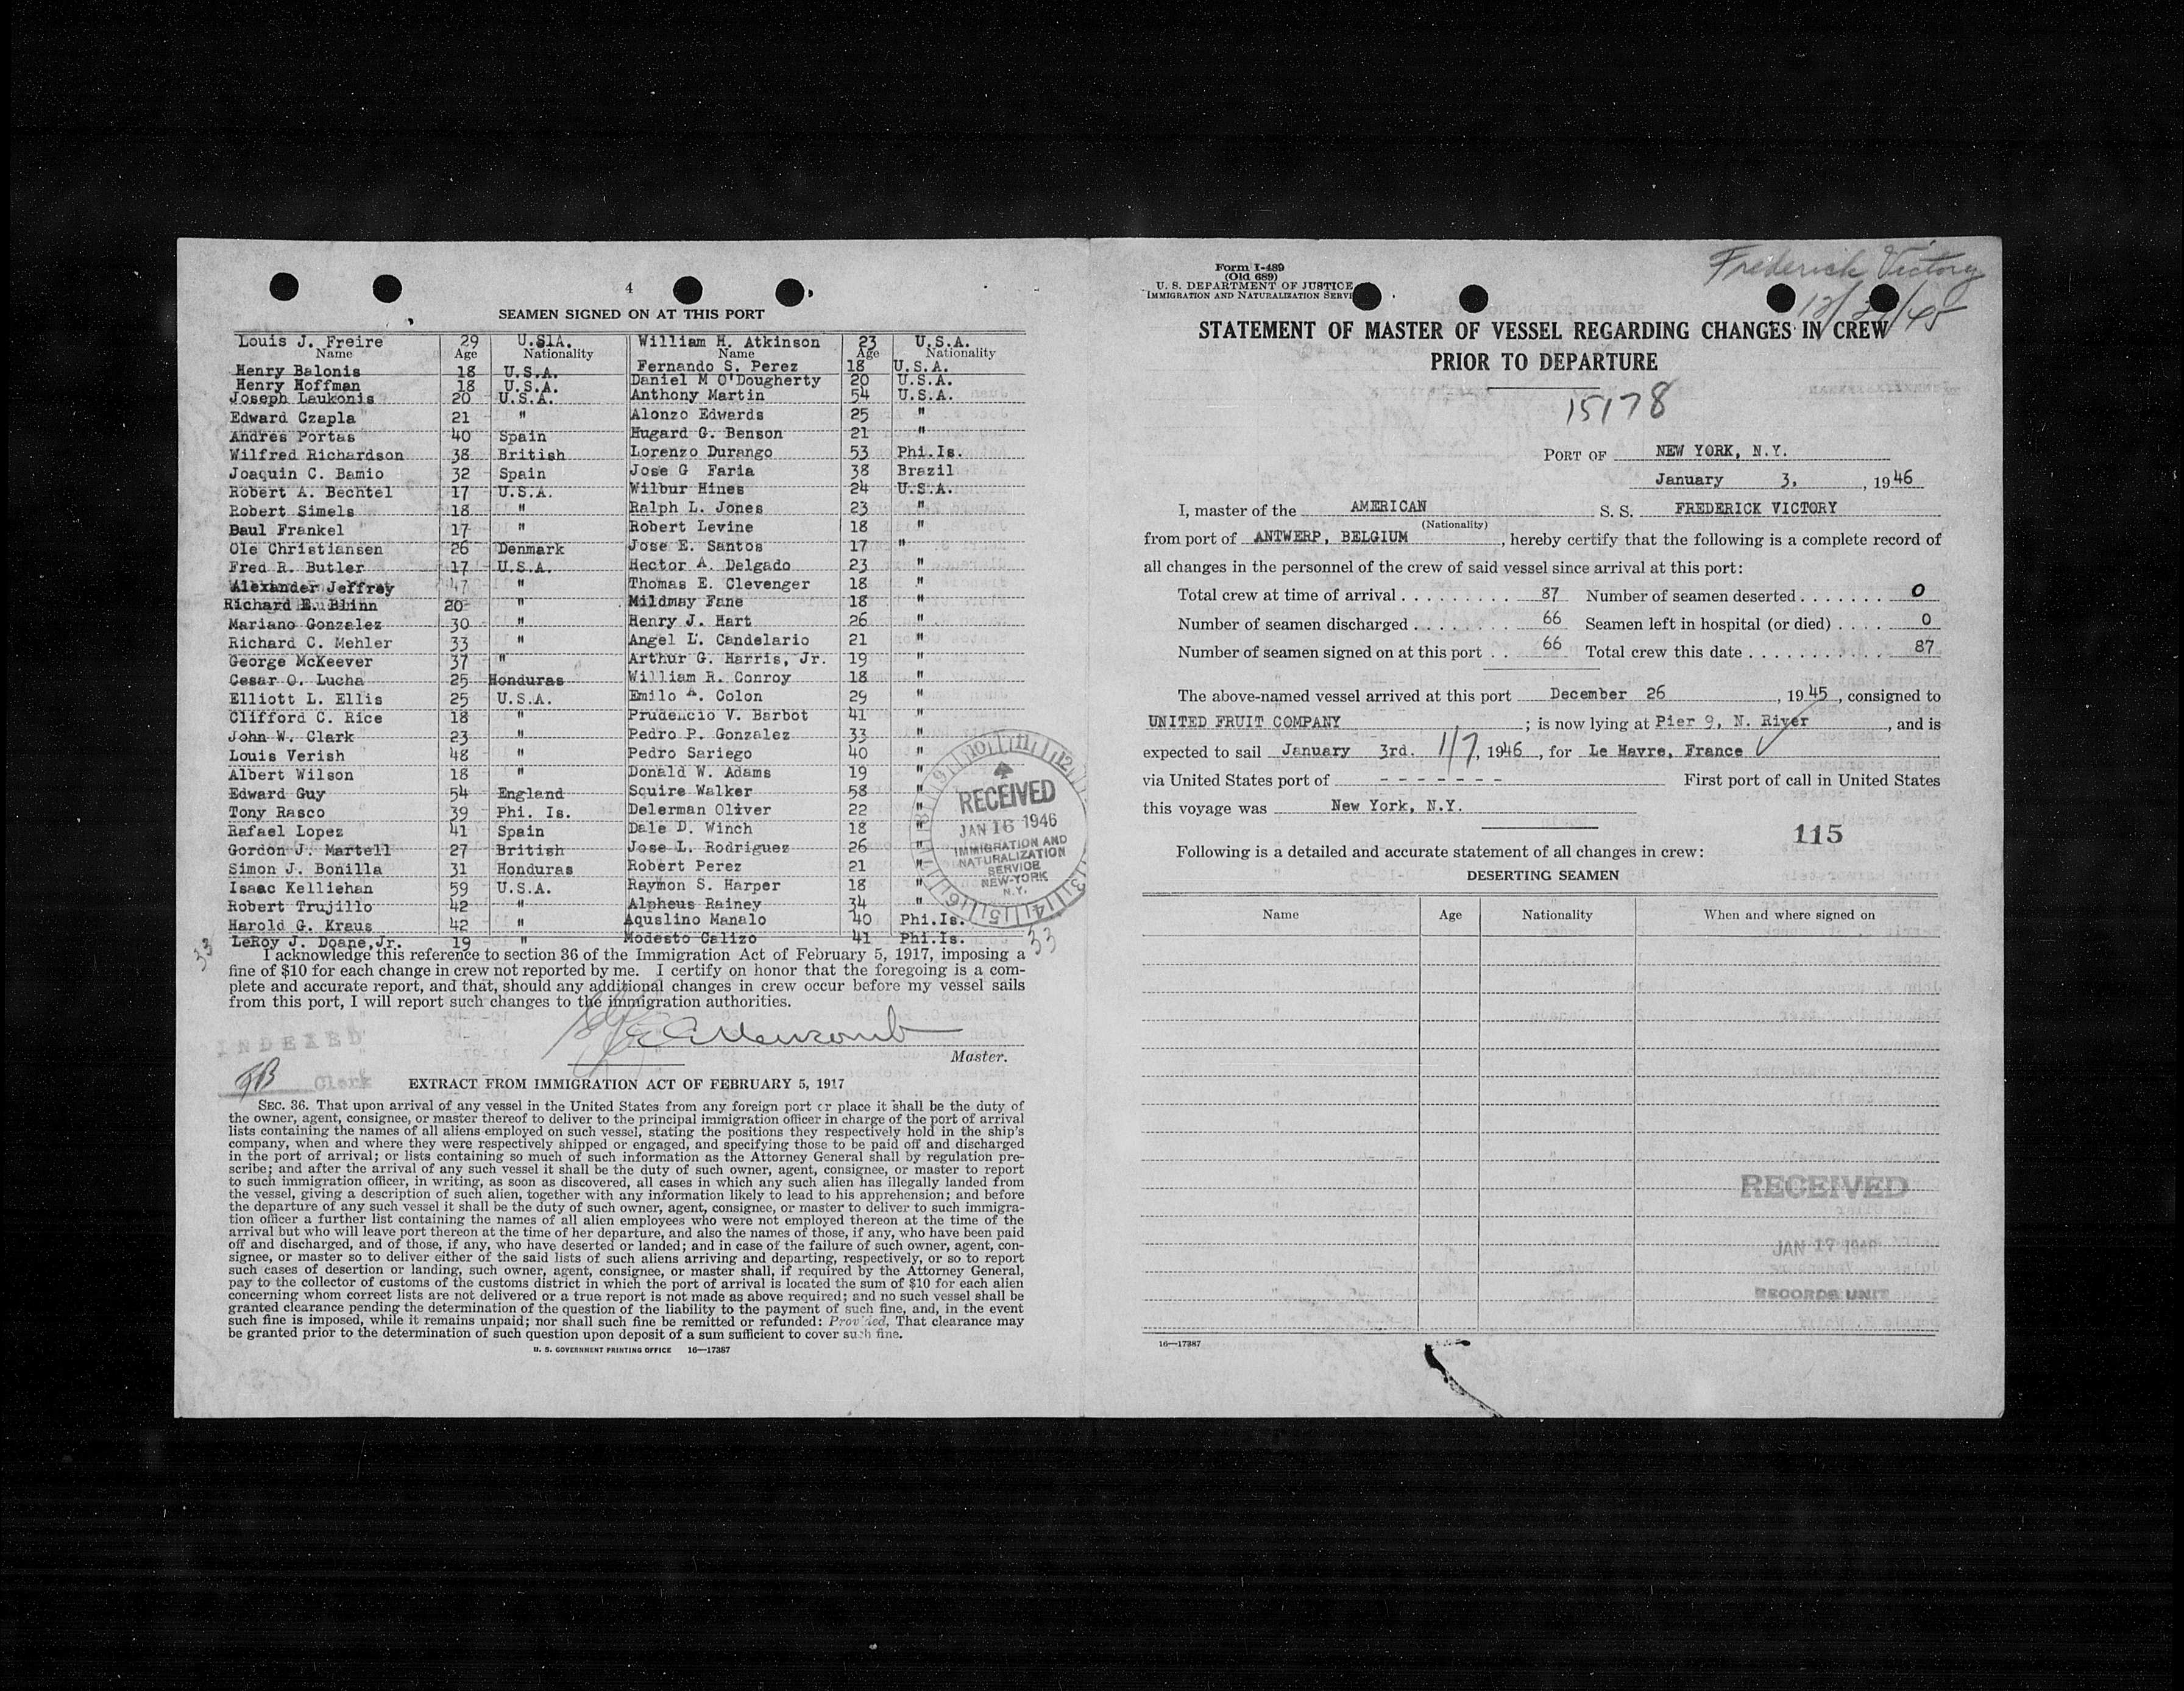 4
SEAMEN SIGNED ON AT THIS PORT
Louis J. Freire 29 U.S.A. William H. Atkinson 23 U.S.A.
Name Age Nationality Name Age Nationality
Henry Balonis 18 U.S.A. Fernando S. Perez 18 U.S.A.
Henry Hoffman 18 U.S.A. Daniel M O'Dougherty 20 U.S.A.
Joseph Laukonis 20 U.S.A. Anthony Martin 54 U.S.A.
Edward Czapla 21 " Alonzo Edwards 25 "
Andres Portas 40 Spain Hugard G. Benson 21 "
Wilfred Richardson 38 British Lorenzo Durango 53 Phi.Is.
Joaquin C. Bamio 32 Spain Jose G Faria 38 Brazil
Robert A. Bechtel 17 U.S.A. Wilbur Hines 24 U.S.A.
Robert Simels 18 " Ralph L. Jones 23 "
Baul Frankel 17 " Robert Levine 18 "
Ole Christiansen 26 Denmark Jose E. Santos 17 "
Fred R. Butler 17 U.S.A. Hector A. Delgado 23 "
Alexander Jeffrey 47 " Thomas E. Clevenger 18 "
Richard E. Blinn 20 " Mildmay Fane 18 "
Mariano Gonzalez 30 " Henry J. Hart 26 "
Richard C. Mehler 33 " Angel L. Candelario 21 "
George McKeever 37 " Arthur G. Harris, Jr. 19 "
Cesar O. Lucha 25 Honduras William R. Conroy 18 "
Elliott L. Ellis 25 U.S.A. Emilo A. Colon 29 "
Clifford C. Rice 18 " Prudencio V. Barbot 41 "
John W. Clark 23 " Pedro P. Gonzalez 33 "
Louis Verish 48 " Pedro Sariego 40 "
Albert Wilson 18 " Donald W. Adams 19 "
Edward Guy 54 England Squire Walker 58 "
Tony Rasco 39 Phi. Is. Delerman Oliver 22 "
Rafael Lopez 41 Spain Dale D. Winch 18 "
Gordon J. Martell 27 British Jose L. Rodriguez 26 "
Simon J. Bonilla 31 Honduras Robert Perez 21 "
Isaac Kelliehan 59 U.S.A. Raymon S. Harper 18 "
Robert Trujillo 42 " Alpheus Rainey 34 "
Harold G. Kraus 42 " Aquslino Manalo 40 Phi.Is.
LeRoy J. Doane,Jr. 19 " Modesto Calizo 41 Phi.Is.
33 33
RECEIVED
JAN 16 1946
IMMIGRATION AND
NATURALIZATION
SERVICE
NEW-YORK
N.Y.
I acknowledge this reference to section 36 of the Immigration Act of February 5, 1917, imposing a
fine of $10 for each change in crew not reported by me. I certify on honor that the foregoing is a com-
plete and accurate report, and that, should any additional changes in crew occur before my vessel sails
from this port, I will report such changes to the immigration authorities.
Master.
INDEXED
Clerk
EXTRACT FROM IMMIGRATION ACT OF FEBRUARY 5, 1917
SEC. 36. That upon arrival of any vessel in the United States from any foreign port or place it shall be the duty of
the owner, agent, consignee, or master thereof to deliver to the principal immigration officer in charge of the port of arrival
lists containing the names of all aliens employed on such vessel, stating the positions they respectively hold in the ship's
company, when and where they were respectively shipped or engaged, and specifying those to be paid off and discharged
in the port of arrival; or lists containing so much of such information as the Attorney General shall by regulation pre-
scribe; and after the arrival of any such vessel it shall be the duty of such owner, agent, consignee, or master to report
to such immigration officer, in writing, as soon as discovered, all cases in which any such alien has illegally landed from
the vessel, giving a description of such alien, together with any information likely to lead to his apprehension; and before
the departure of any such vessel it shall be the duty of such owner, agent, consignee, or master to deliver to such immigra-
tion officer a further list containing the names of all alien employees who were not employed thereon at the time of the
arrival but who will leave port thereon at the time of her departure, and also the names of those, if any, who have been paid
off and discharged, and of those, if any, who have deserted or landed; and in case of the failure of such owner, agent, con-
signee, or master so to deliver either of the said lists of such aliens arriving and departing, respectively, or so to report
such cases of desertion or landing, such owner, agent, consignee, or master shall, if required by the Attorney General,
pay to the collector of customs of the customs district in which the port of arrival is located the sum of $10 for each alien
concerning whom correct lists are not delivered or a true report is not made as above required; and no such vessel shall be
granted clearance pending the determination of the question of the liability to the payment of such fine, and, in the event
such fine is imposed, while it remains unpaid; nor shall such fine be remitted or refunded: Provided, That clearance may
be granted prior to the determination of such question upon deposit of a sum sufficient to cover such fine.
U. S. GOVERNMENT PRINTING OFFICE 16—17387
Form I-489
(Old 689)
U. S. DEPARTMENT OF JUSTICE
IMMIGRATION AND NATURALIZATION SERVI
Frederick Victory
STATEMENT OF MASTER OF VESSEL REGARDING CHANGES IN CREW
PRIOR TO DEPARTURE
15178
PORT OF NEW YORK, N.Y.
January 3, , 1946
I, master of the AMERICAN S. S. FREDERICK VICTORY
(Nationality)
from port of ANTWERP, BELGIUM , hereby certify that the following is a complete record of
all changes in the personnel of the crew of said vessel since arrival at this port:
Total crew at time of arrival . . . . . . . . . 87 Number of seamen deserted . . . . . . . 0
Number of seamen discharged . . . . . . . . 66 Seamen left in hospital (or died) . . . . 0
Number of seamen signed on at this port . . 66 Total crew this date . . . . . . . . . . . 87
The above-named vessel arrived at this port December 26 , 1945, consigned to
UNITED FRUIT COMPANY ; is now lying at Pier 9, N. River , and is
expected to sail January 3rd. 1/7, 1946, for Le Havre, France
via United States port of - - - - - - - First port of call in United States
this voyage was New York, N.Y.
115
Following is a detailed and accurate statement of all changes in crew:
DESERTING SEAMEN
Name Age Nationality When and where signed on
RECEIVED
JAN 17 1946
RECORDS UNIT
16—17387